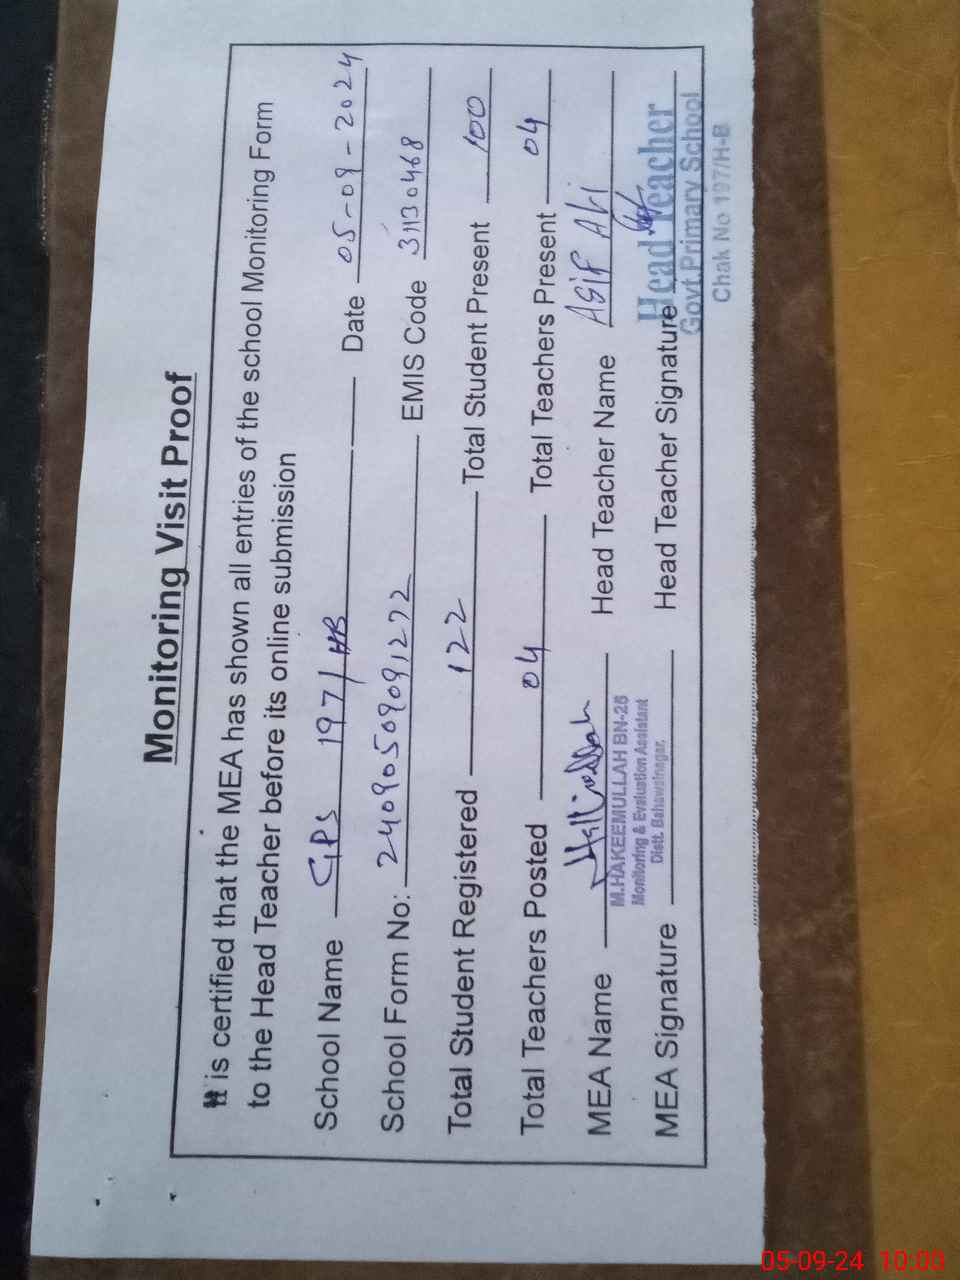 Monitoring Visit Proof
It is certified that the MEA has shown all entries of the school Monitoring Form
to the Head Teacher before its online submission
School Name GPS 197/HB Date 05-09-2024
School Form No: 24090509091272 EMIS Code 31130468
Total Student Registered 122 Total Student Present 100
Total Teachers Posted 04 Total Teachers Present 04
MEA Name Head Teacher Name Asif Ali
M.HAKEEMULLAH BN-26
Monitoring & Evaluation Assistant
Distt. Bahawalnagar.
MEA Signature Head Teacher Signature
Head Teacher
Govt. Primary School
Chak No 197/H-B
05-09-24 10:00